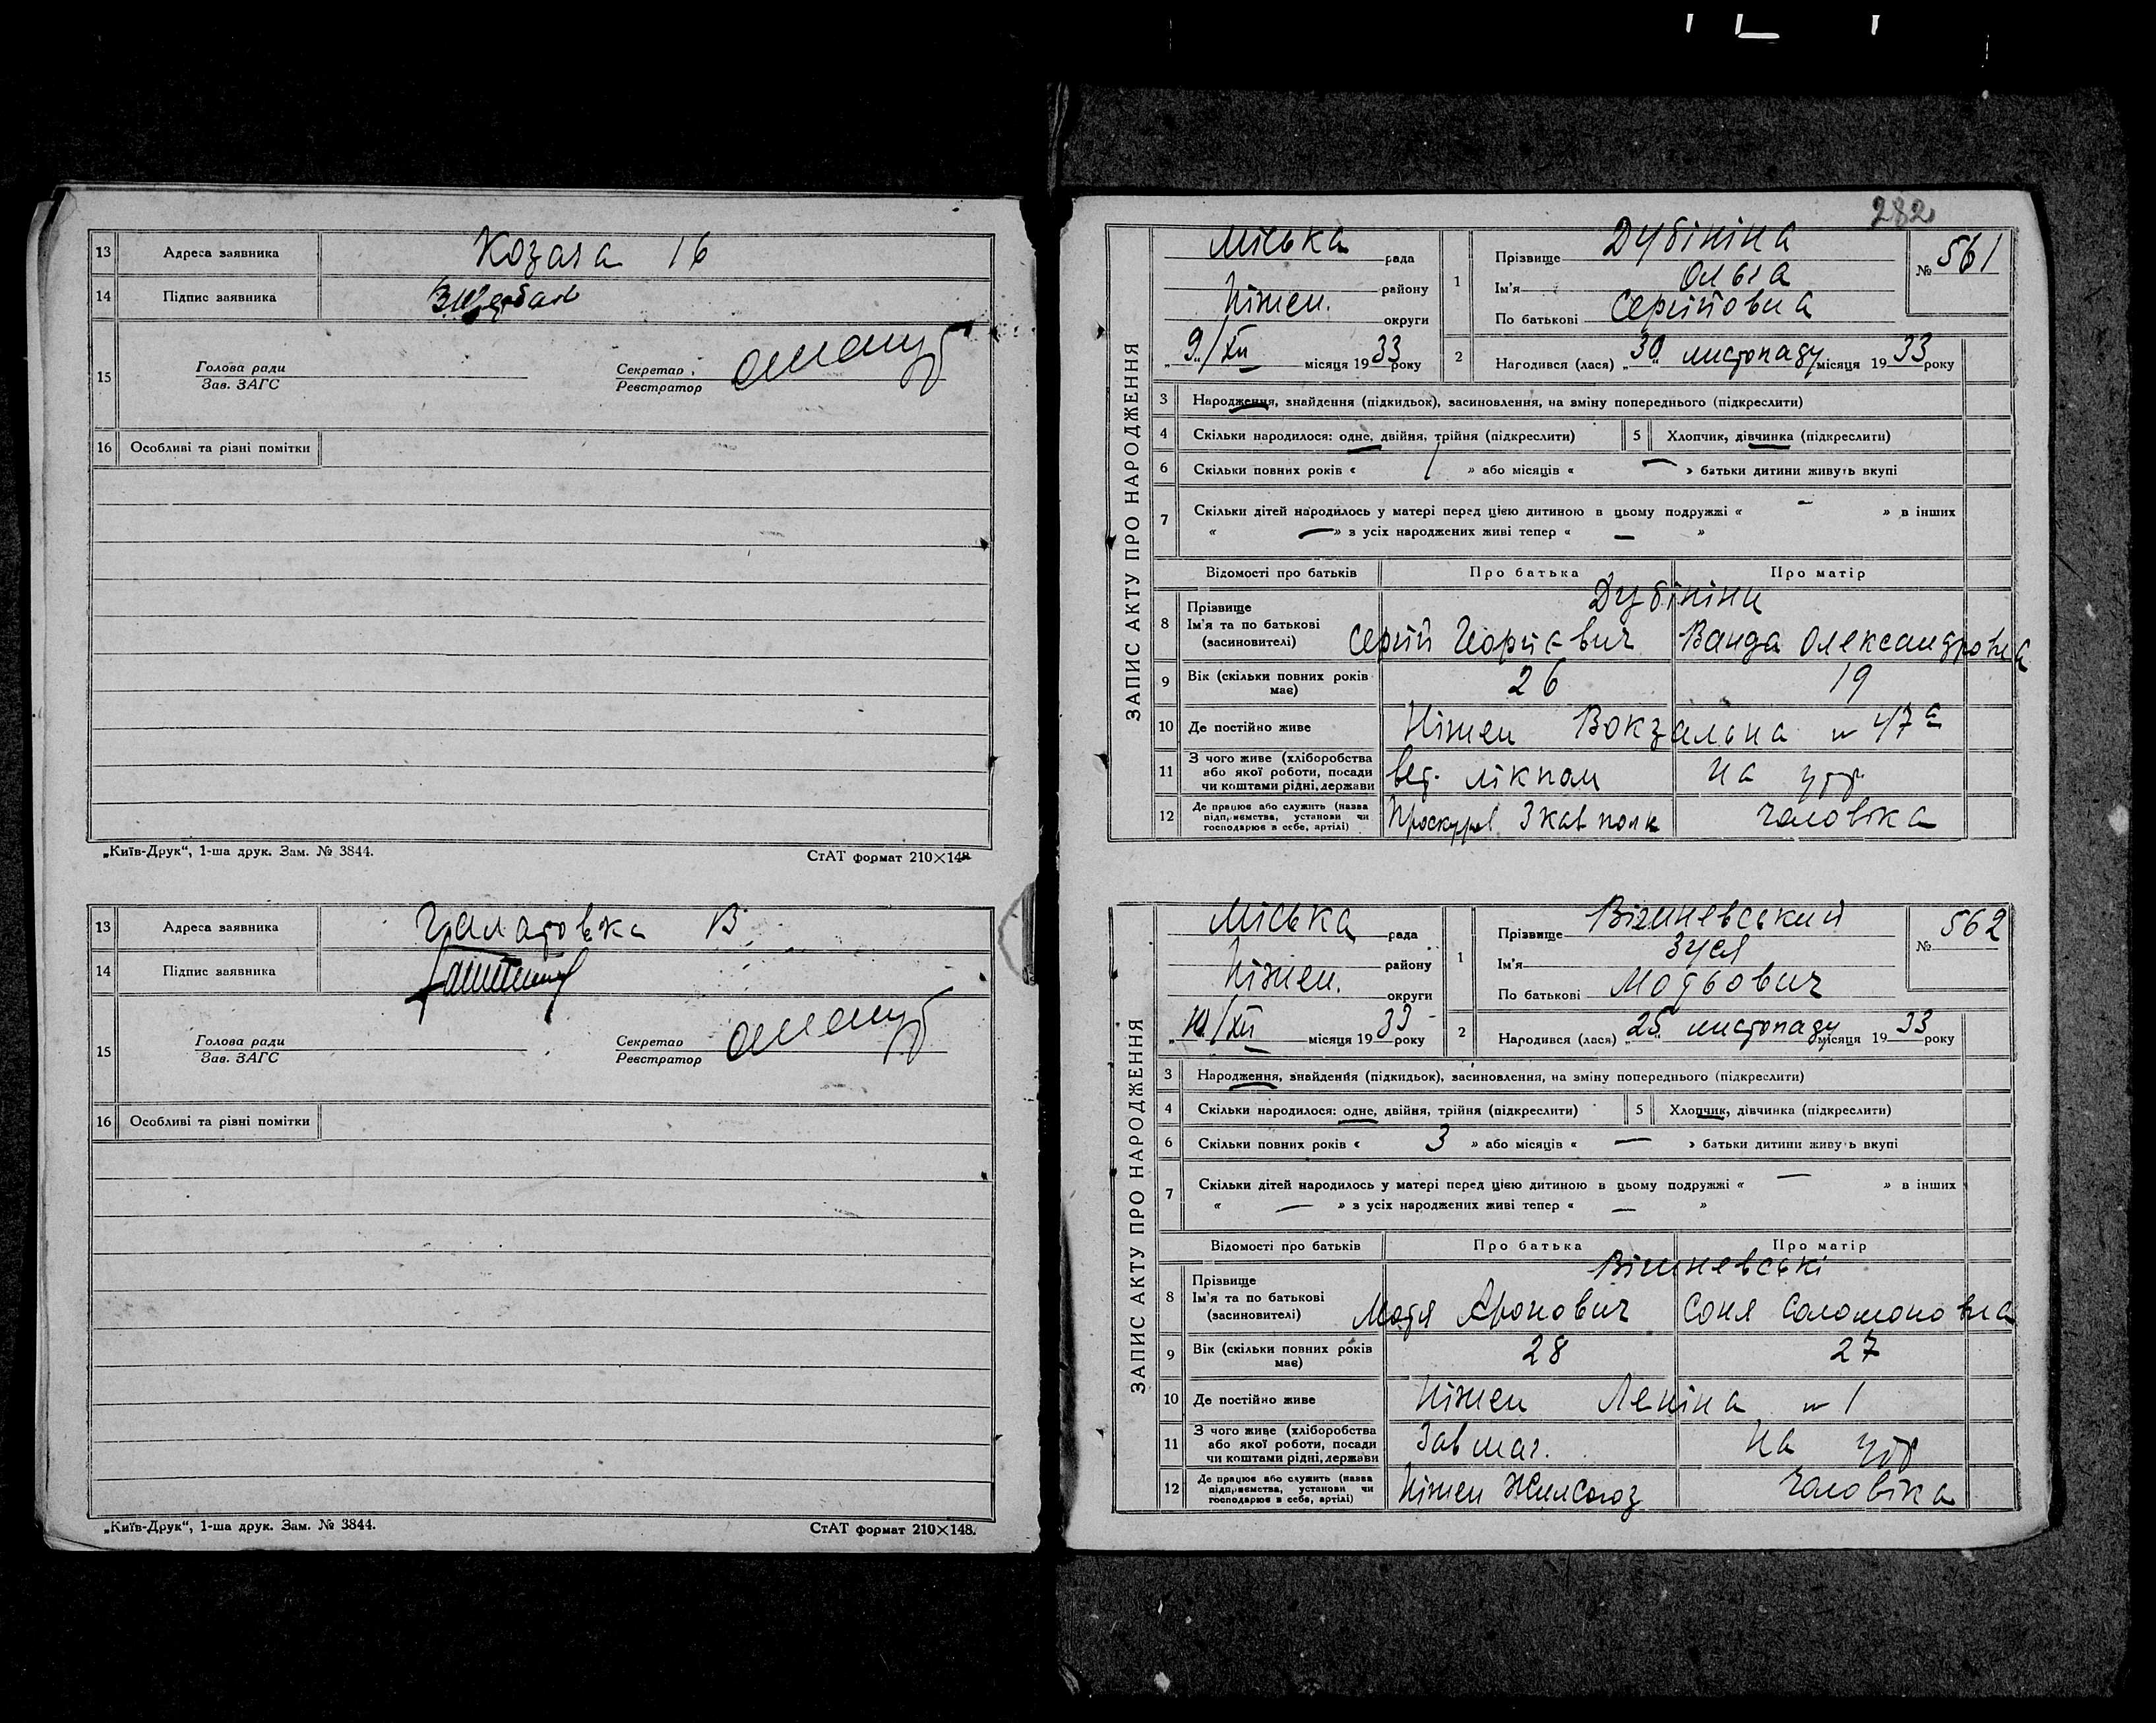 13 Адреса заявника Козача 16
14 Підпис заявника
15 Голова ради
Зав. ЗАГС
Секретар
Реєстратор
16 Особливі та різні помітки
„Київ-Друк“, 1-ша друк. Зам. № 3844. СтАТ формат 210×148
13 Адреса заявника В
14 Підпис заявника
15 Голова ради
Зав. ЗАГС
Секретар
Реєстратор
16 Особливі та різні помітки
„Київ-Друк“, 1-ша друк. Зам. № 3844. СтАТ формат 210×148.
282
ЗАПИС АКТУ ПРО НАРОДЖЕННЯ
Міська рада
району
Ніжен. округи
„9/XII місяця 1933 року
1 Прізвище Дубініна
Ім'я Ольга
По батькові Сергіївна
№ 561
2 Народився (лася) „30“ листопаду місяця 1933 року
3 Народження, знайдення (підкидьок), засиновлення, на зміну попереднього (підкреслити)
4 Скільки народилося: одне, двійня, трійня (підкреслити) 5 Хлопчик, дівчинка (підкреслити)
6 Скільки повних років « / » або місяців « — » батьки дитини живуть вкупі
7 Скільки дітей народилось у матері перед цією дитиною в цьому подружжі « — » в інших
« — » з усіх народжених живі тепер « — »
Відомості про батьків Про батька Про матір
Дубініни
8 Прізвище
Ім'я та по батькові
(засиновителі)
Сергій Георгієвич Ванда Олександровна
9 Вік (скільки повних років має) 26 19
10 Де постійно живе Ніжен Вокзальна № 47а
11 З чого живе (хліборобства
або якої роботи, посади
чи коштами рідні, держави
вет. лікпом на утр
12 Де працює або служить (назва
підприємства, установи чи
господарює в себе, артілі)
Проскурів 3 кав полк чаловіка
ЗАПИС АКТУ ПРО НАРОДЖЕННЯ
Міська рада
району
Ніжен. округи
„10/XII місяця 1933 року
1 Прізвище Вішневський
Ім'я Зуся
По батькові Мотьович
№ 562
2 Народився (лася) „25“ листопаду місяця 1933 року
3 Народження, знайдення (підкидьок), засиновлення, на зміну попереднього (підкреслити)
4 Скільки народилося: одне, двійня, трійня (підкреслити) 5 Хлопчик, дівчинка (підкреслити)
6 Скільки повних років « 3 » або місяців « — » батьки дитини живуть вкупі
7 Скільки дітей народилось у матері перед цією дитиною в цьому подружжі « — » в інших
« — » з усіх народжених живі тепер « — »
Відомості про батьків Про батька Про матір
Вішневські
8 Прізвище
Ім'я та по батькові
(засиновителі)
Мотя Аронович Соня Соломоновна
9 Вік (скільки повних років має) 28 27
10 Де постійно живе Ніжен Леніна № 1
11 З чого живе (хліборобства
або якої роботи, посади
чи коштами рідні, держави
Завмаг. на утр
12 Де працює або служить (назва
підприємства, установи чи
господарює в себе, артілі)
Ніжен Жилсоюз чаловіка